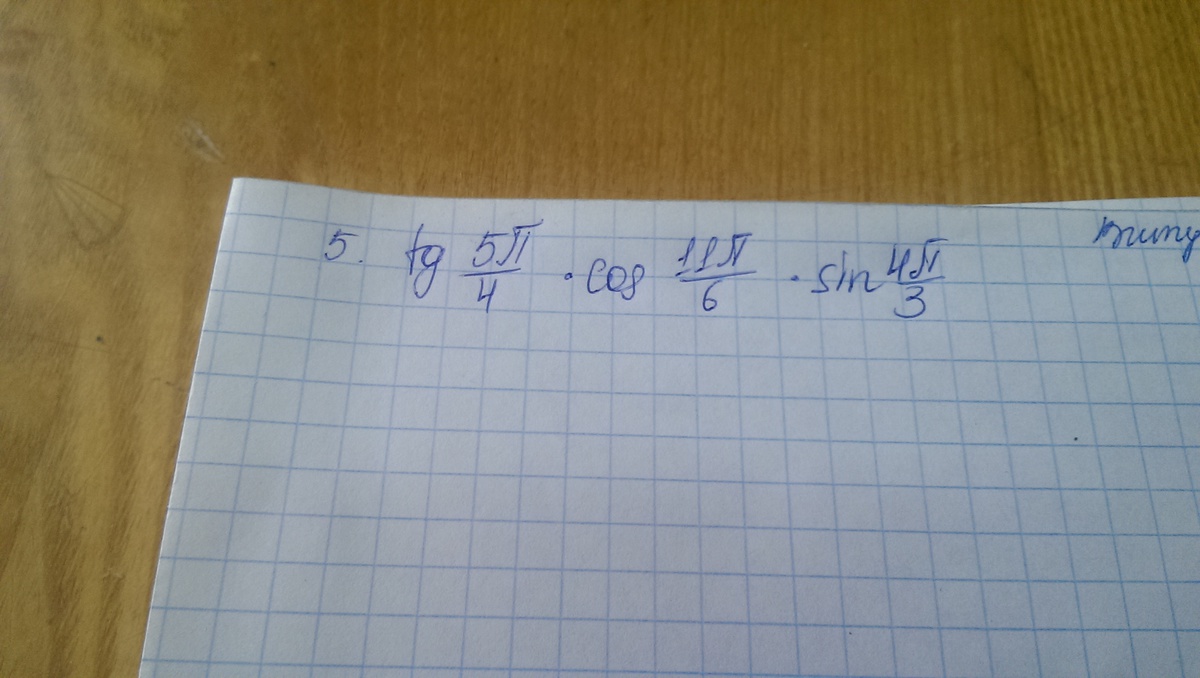 5. tg 5π/4 · cos 11π/6 · sin 4π/3